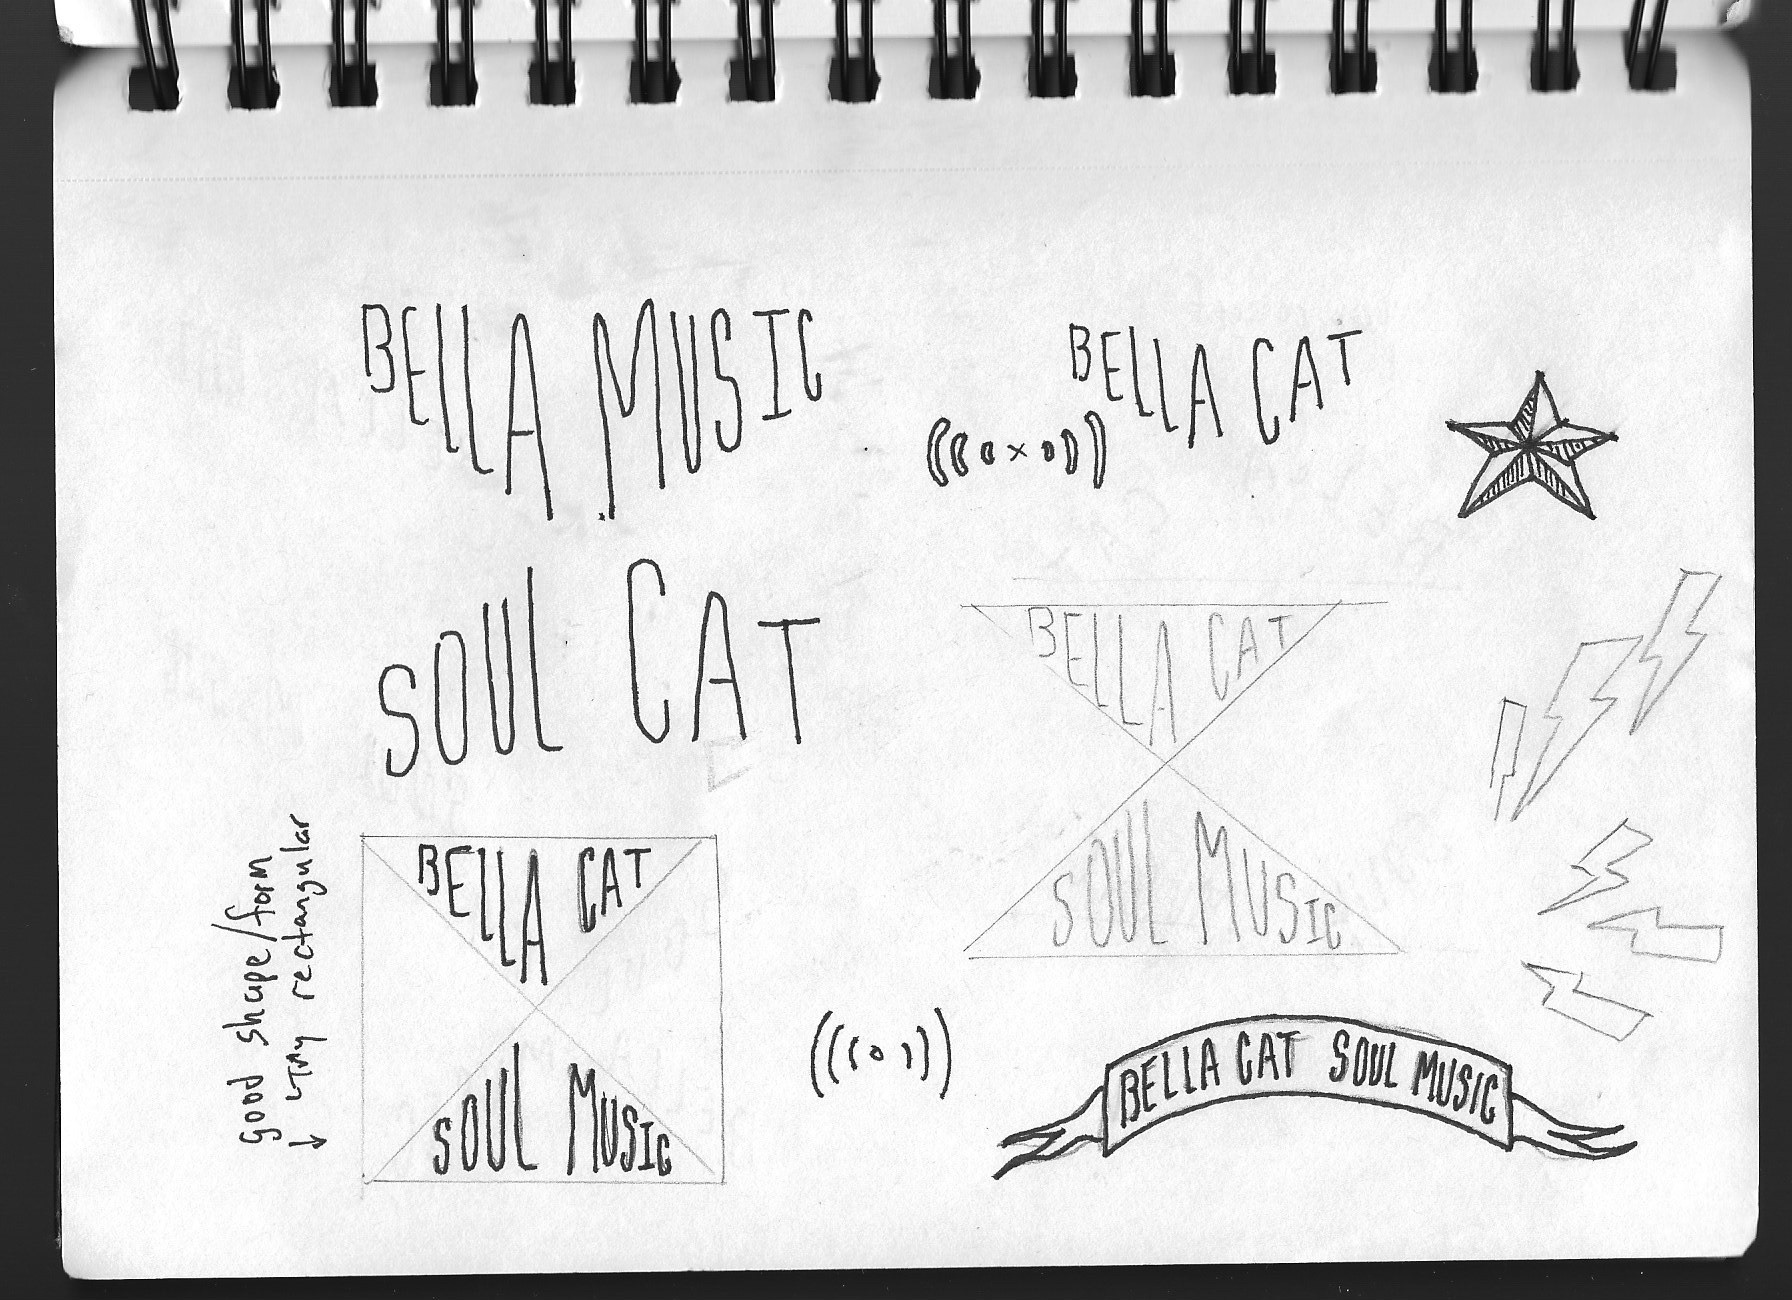 BELLA MUSIC
BELLA CAT
SOUL CAT
BELLA CAT
SOUL MUSIC
good shape/form
↳ Try rectangular
BELLA CAT
SOUL MUSIC
BELLA CAT SOUL MUSIC